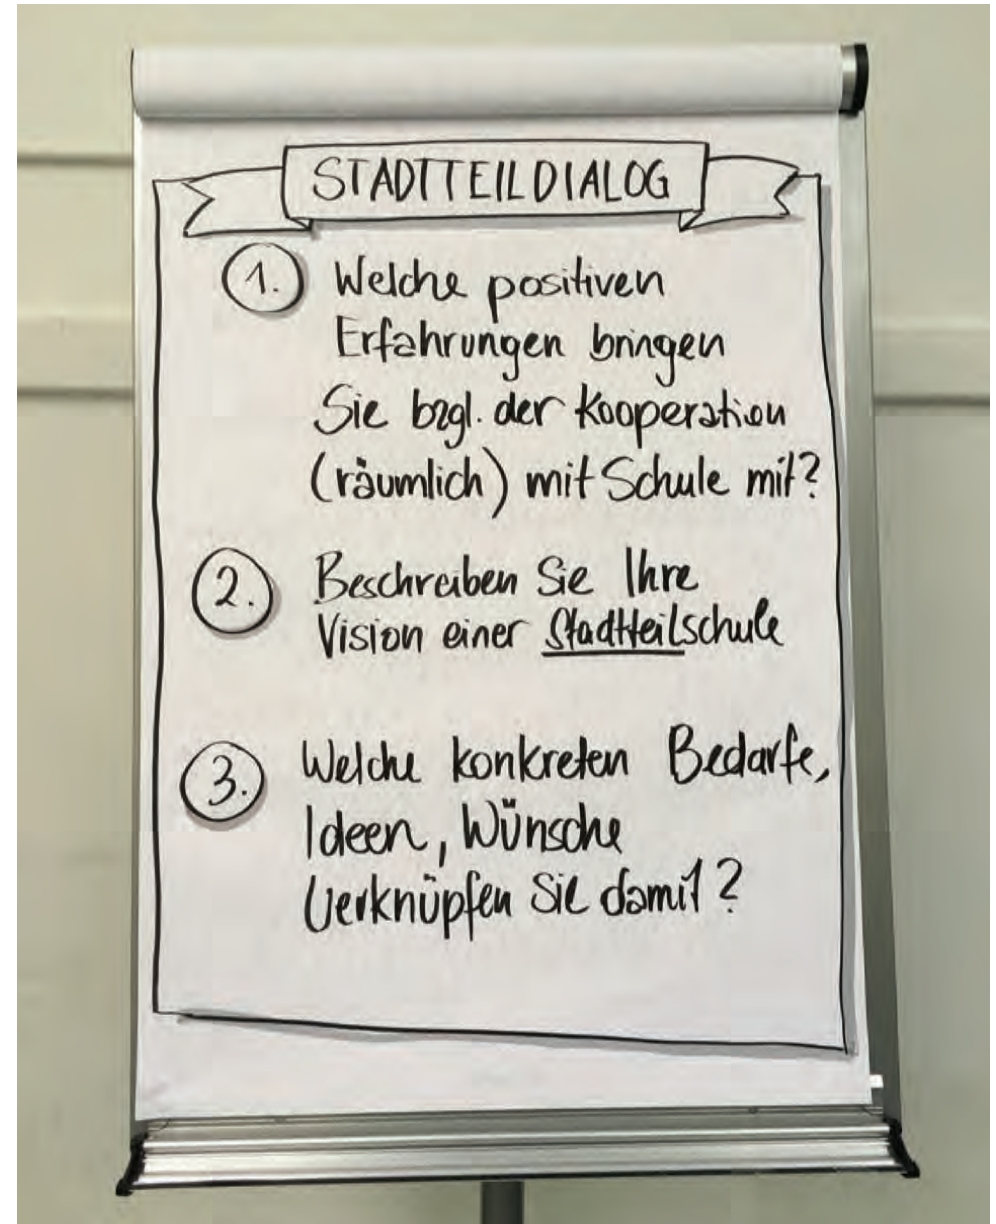 STADTTEILDIALOG
1. Welche positiven
Erfahrungen bringen
Sie bzgl. der Kooperation
(räumlich) mit Schule mit?
2. Beschreiben Sie Ihre
Vision einer Stadtteilschule
3. Welche konkreten Bedarfe,
Ideen, Wünsche
Verknüpfen Sie damit?